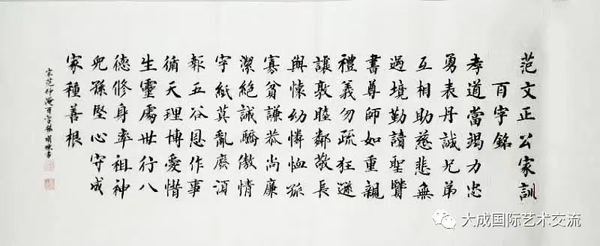 范文正公家訓
百字銘
孝道當竭力忠
勇表丹誠兄弟
互相助慈悲無
過境勤讀聖賢
書尊師如重親
禮義勿疏狂遜
讓敦睦鄰敬長
與懷幼憐恤孤
寡貧謙恭尚廉
潔絕誡驕傲情
字紙莫亂廢須
報五谷恩作事
循天理博愛惜
生靈處世行八
德修身率祖神
兒孫堅心守成
家種善根
宋范仲淹百字銘 書
大成国际艺术交流